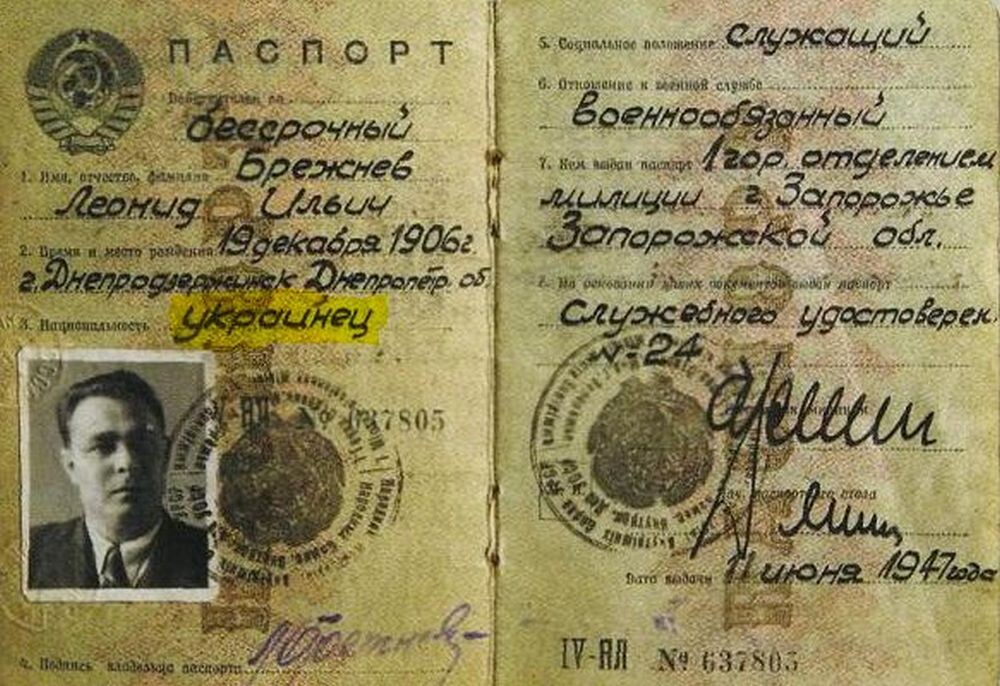 ПАСПОРТ
Действителен на
бессрочный
1. Имя, отчество, фамилия Брежнев
Леонид Ильич
2. Время и место рождения 19 декабря 1906 г.
г. Днепродзержинск Днепропетр. об.
3. Национальность украинец
№ 637805
4. Подпись владельца паспорта
5. Социальное положение служащий
6. Отношение к военной службе
военнообязанный
7. Кем выдан паспорт 1 гор. отделением
милиции г Запорожье
Запорожской обл.
8. На основании каких документов выдан паспорт
служебного удостоверен.
V-24
Нач. паспортного стола
Дата выдачи 11 июня 1947 года
IV-ЯЛ № 637805